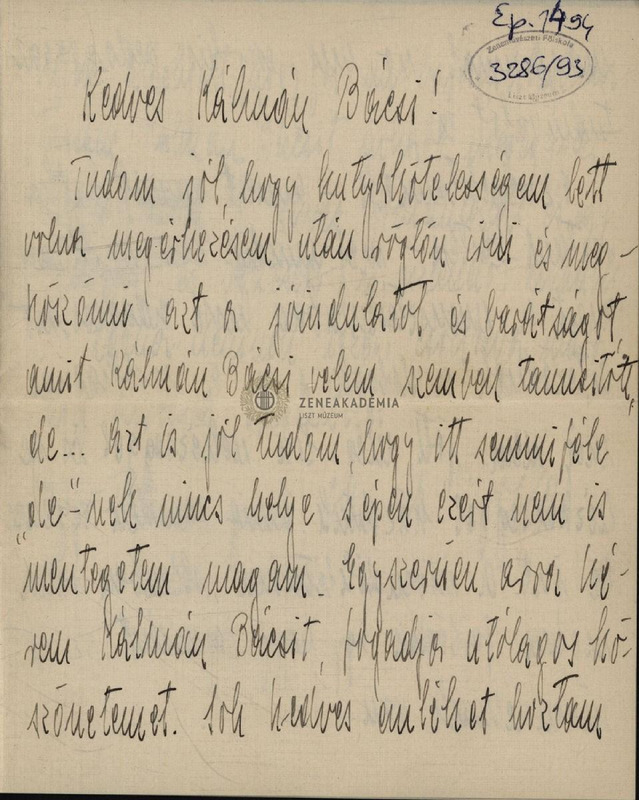 Ép. 1494
Zeneművészeti Főiskola
3286/93
Liszt Múzeum
Kedves Kálmán Bácsi!
Tudom jól, hogy kutyakötelességem lett
volna megérkezésem után rögtön irni és meg-
köszönni azt a jóindulatot és barátságot,
amit Kálmán Bácsi velem szemben tanusitott,
ZENEAKADÉMIA
LISZT MÚZEUM
de... azt is jól tudom, hogy itt semmiféle
„de"-nek nincs helye s épen ezért nem is
mentegetem magam. Egyszerüen arra ké-
rem Kálmán Bácsit, fogadja utólagos kö-
szönetemet. Sok kedves emléket hoztam